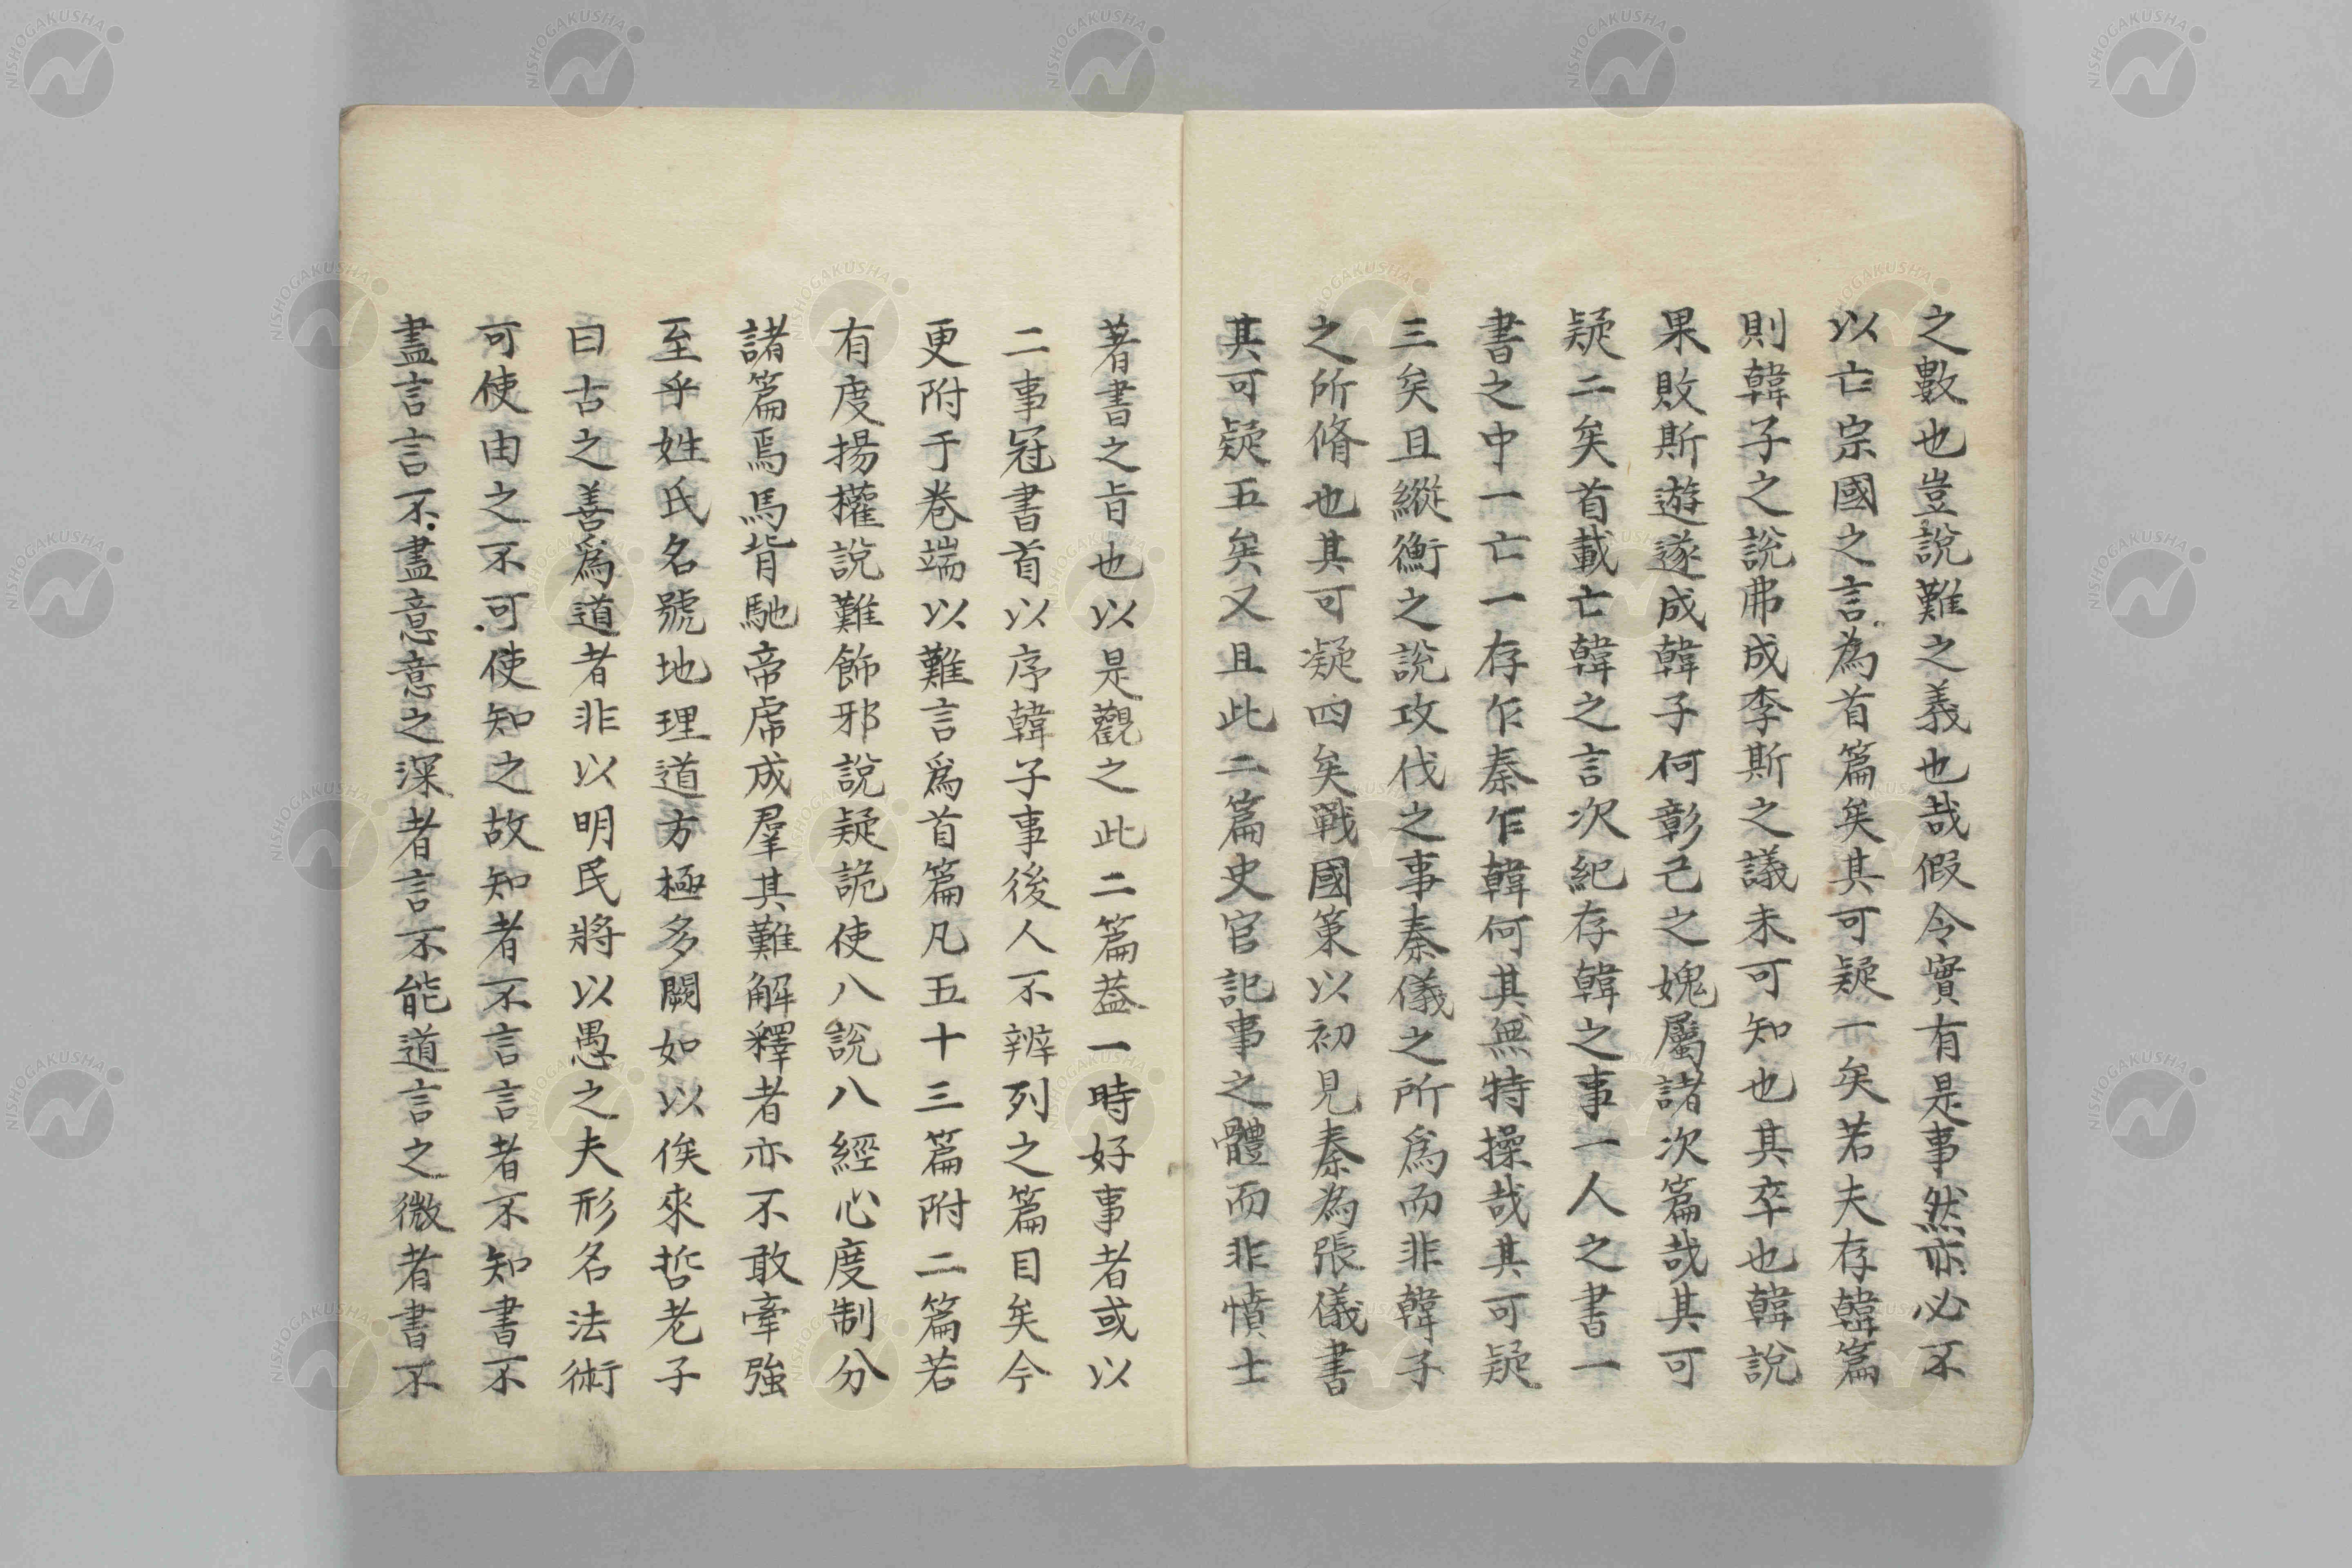 之數也豈說難之義也哉假令實有是事然亦必不
以亡宗國之言為首篇矣其可疑一矣若夫存韓篇
則韓子之說弗成李斯之議未可知也其卒也韓說
果敗斯遊遂成韓子何彰己之媿屬諸次篇哉其可
疑二矣首載亡韓之言次紀存韓之事一人之書一
書之中一亡一存乍秦乍韓何其無特操哉其可疑
三矣且縱衡之說攻伐之事秦儀之所爲而非韓子
之所脩也其可凝四矣戰國策以初見秦為張儀書
其可疑五矣又且此二篇史官記事之體而非憤士
著書之旨也以是觀之此二篇葢一時好事者或以
二事冠書首以序韓子事後人不辨列之篇目矣今
更附于卷端以難言爲首篇凡五十三篇附二篇若
有度揚權說難飾邪說疑詭使八說八經心度制分
諸篇焉馬背馳帝虎成羣其難解釋者亦不敢牽強
至乎姓氏名號地理道方極多闕如以俟來哲老子
曰古之善爲道者非以明民將以愚之夫形名法術
可使由之不可使知之故知者不言言者不知書不
盡言言不盡意意之深者言不能道言之微者書不
NISHOGAKUSHA